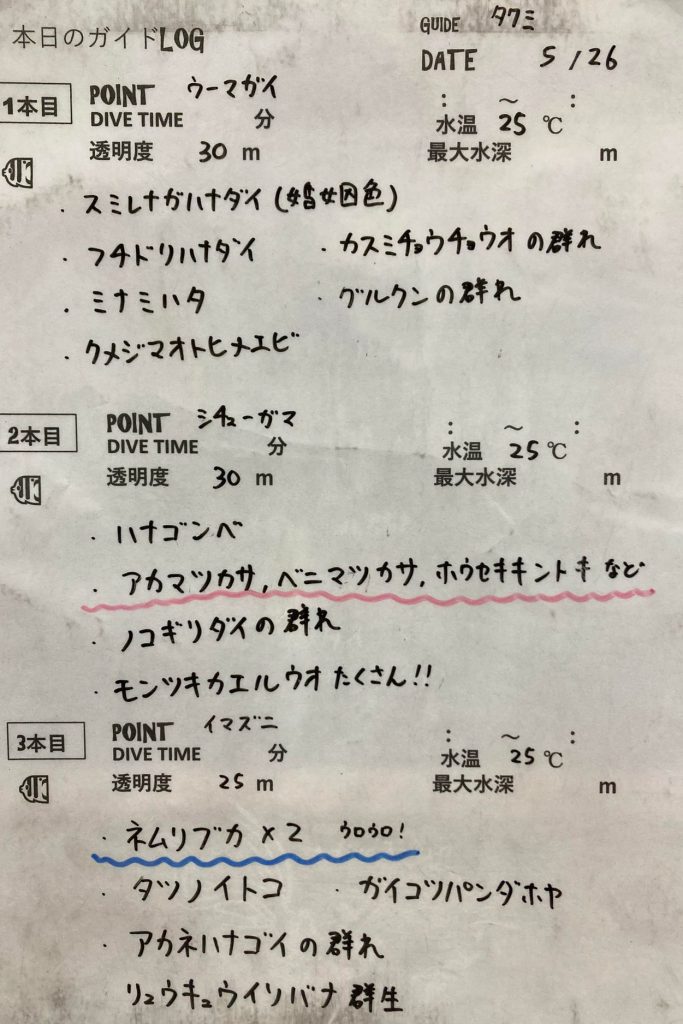 本日のガイドLOG
GUIDE タクミ
DATE 5/26
1本目 POINT ウーマガイ : ～ :
DIVE TIME 分 水温 25 ℃
透明度 30 m 最大水深 m
・スミレナガハナダイ(婚姻色)
・フチドリハナダイ ・カスミチョウチョウオの群れ
・ミナミハタ ・グルクンの群れ
・クメジマオトヒメエビ
2本目 POINT シチューガマ : ～ :
DIVE TIME 分 水温 25 ℃
透明度 30 m 最大水深 m
・ハナゴンベ
・アカマツカサ, ベニマツカサ, ホウセキキントキ など
・ノコギリダイの群れ
・モンツキカエルウオ たくさん!!
3本目 POINT イマズニ : ～ :
DIVE TIME 分 水温 25 ℃
透明度 25 m 最大水深 m
・ネムリブカ×2 ウロウロ!
・タツノイトコ ・ガイコツパンダホヤ
・アカネハナゴイの群れ
リュウキュウイソバナ 群生